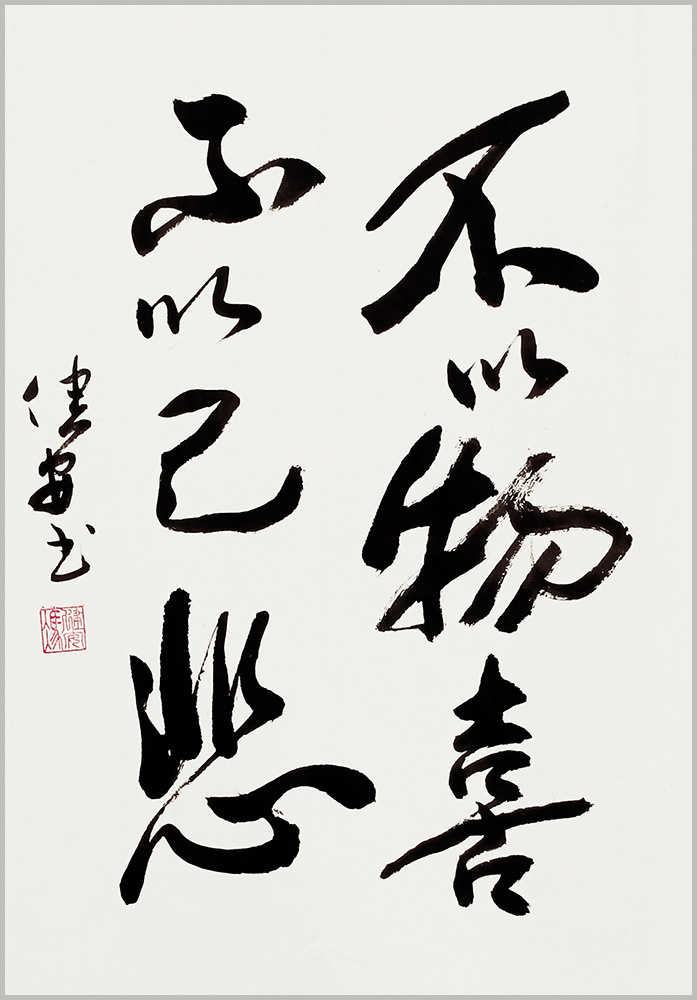 不以物喜
不以己悲
健安书